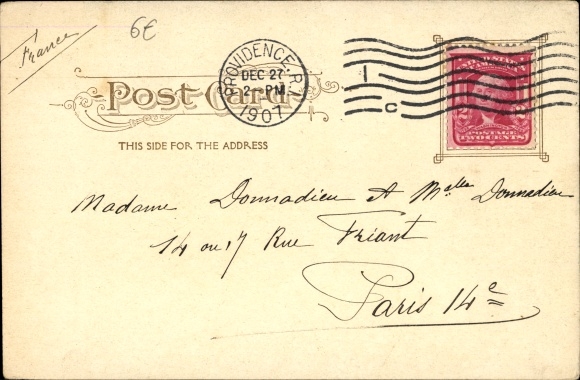 France
6€
PROVIDENCE, R.I.
DEC 27
2 - PM
1907
1
C
Post Card
THIS SIDE FOR THE ADDRESS
POSTAGE
2 TWO CENTS 2
Madame Donnadieu et Melles Donnadieu
14 ou 17 Rue Friant
Paris 14e